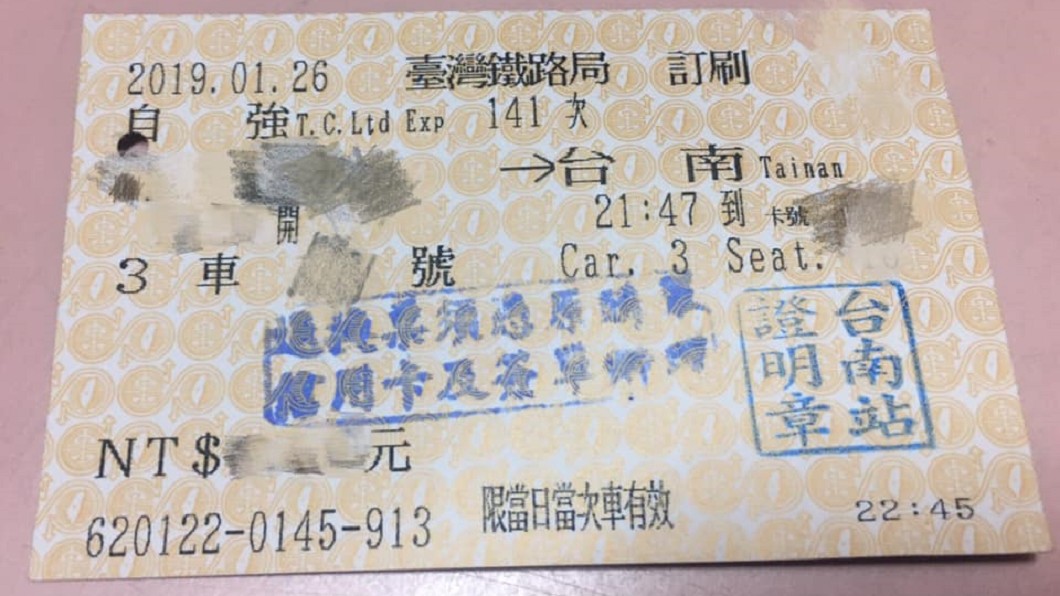 2019.01.26 臺灣鐵路局 訂刷
自 強 T.C.Ltd Exp 141 次
→台 南 Tainan
開 21:47 到 卡號
3 車 號 Car. 3 Seat.
退換票須憑原購票
信用卡及簽單辦理
台南站
證明章
NT$ 元
620122-0145-913 限當日當次車有效 22:45